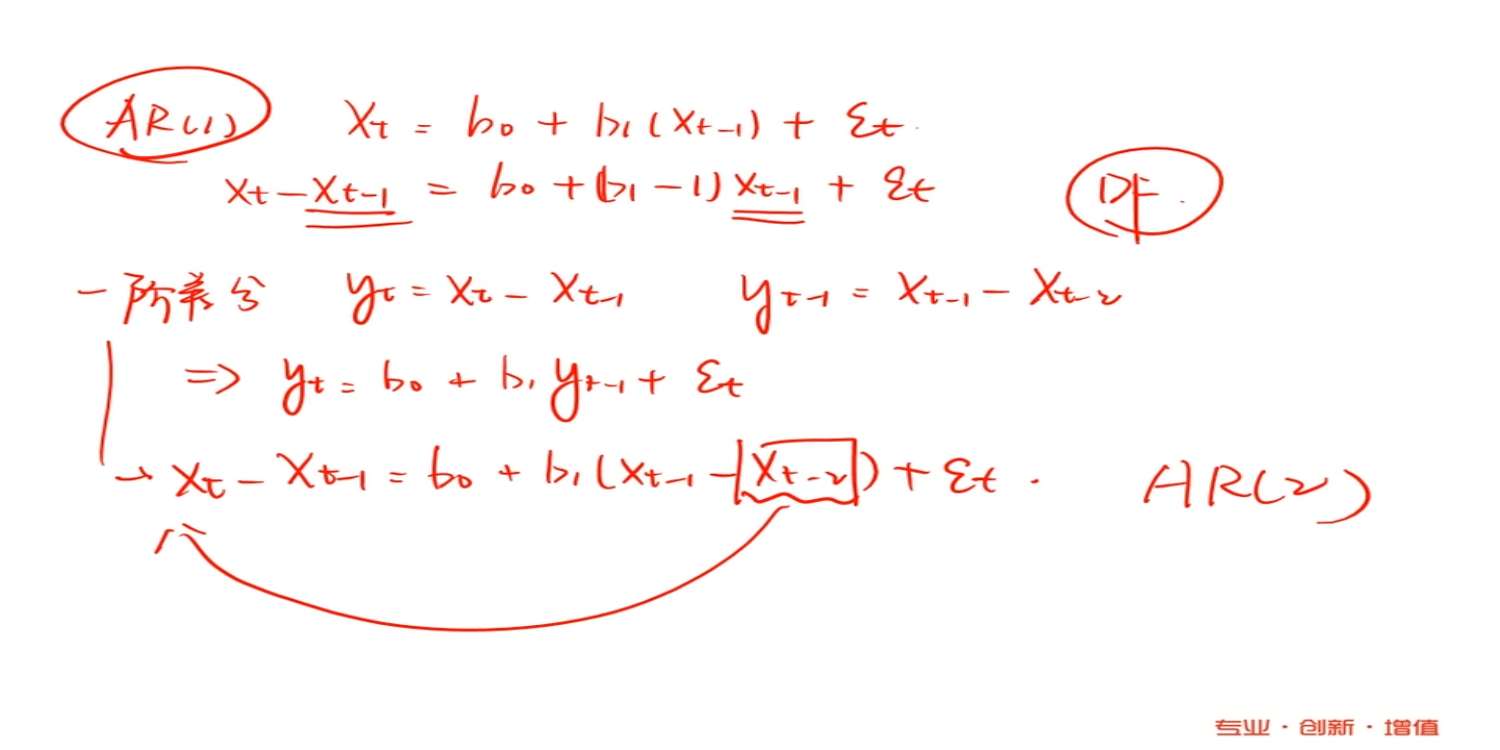 AR(1) Xt = b0 + b1(Xt-1) + εt
Xt-Xt-1 = b0+(b1-1)Xt-1 + εt DF.
一阶差分 yt = Xt - Xt-1 yt-1 = Xt-1 - Xt-2
=> yt = b0 + b1 yt-1 + εt
→ Xt - Xt-1 = b0 + b1(Xt-1 - Xt-2) + εt. AR(2)
专业·创新·增值